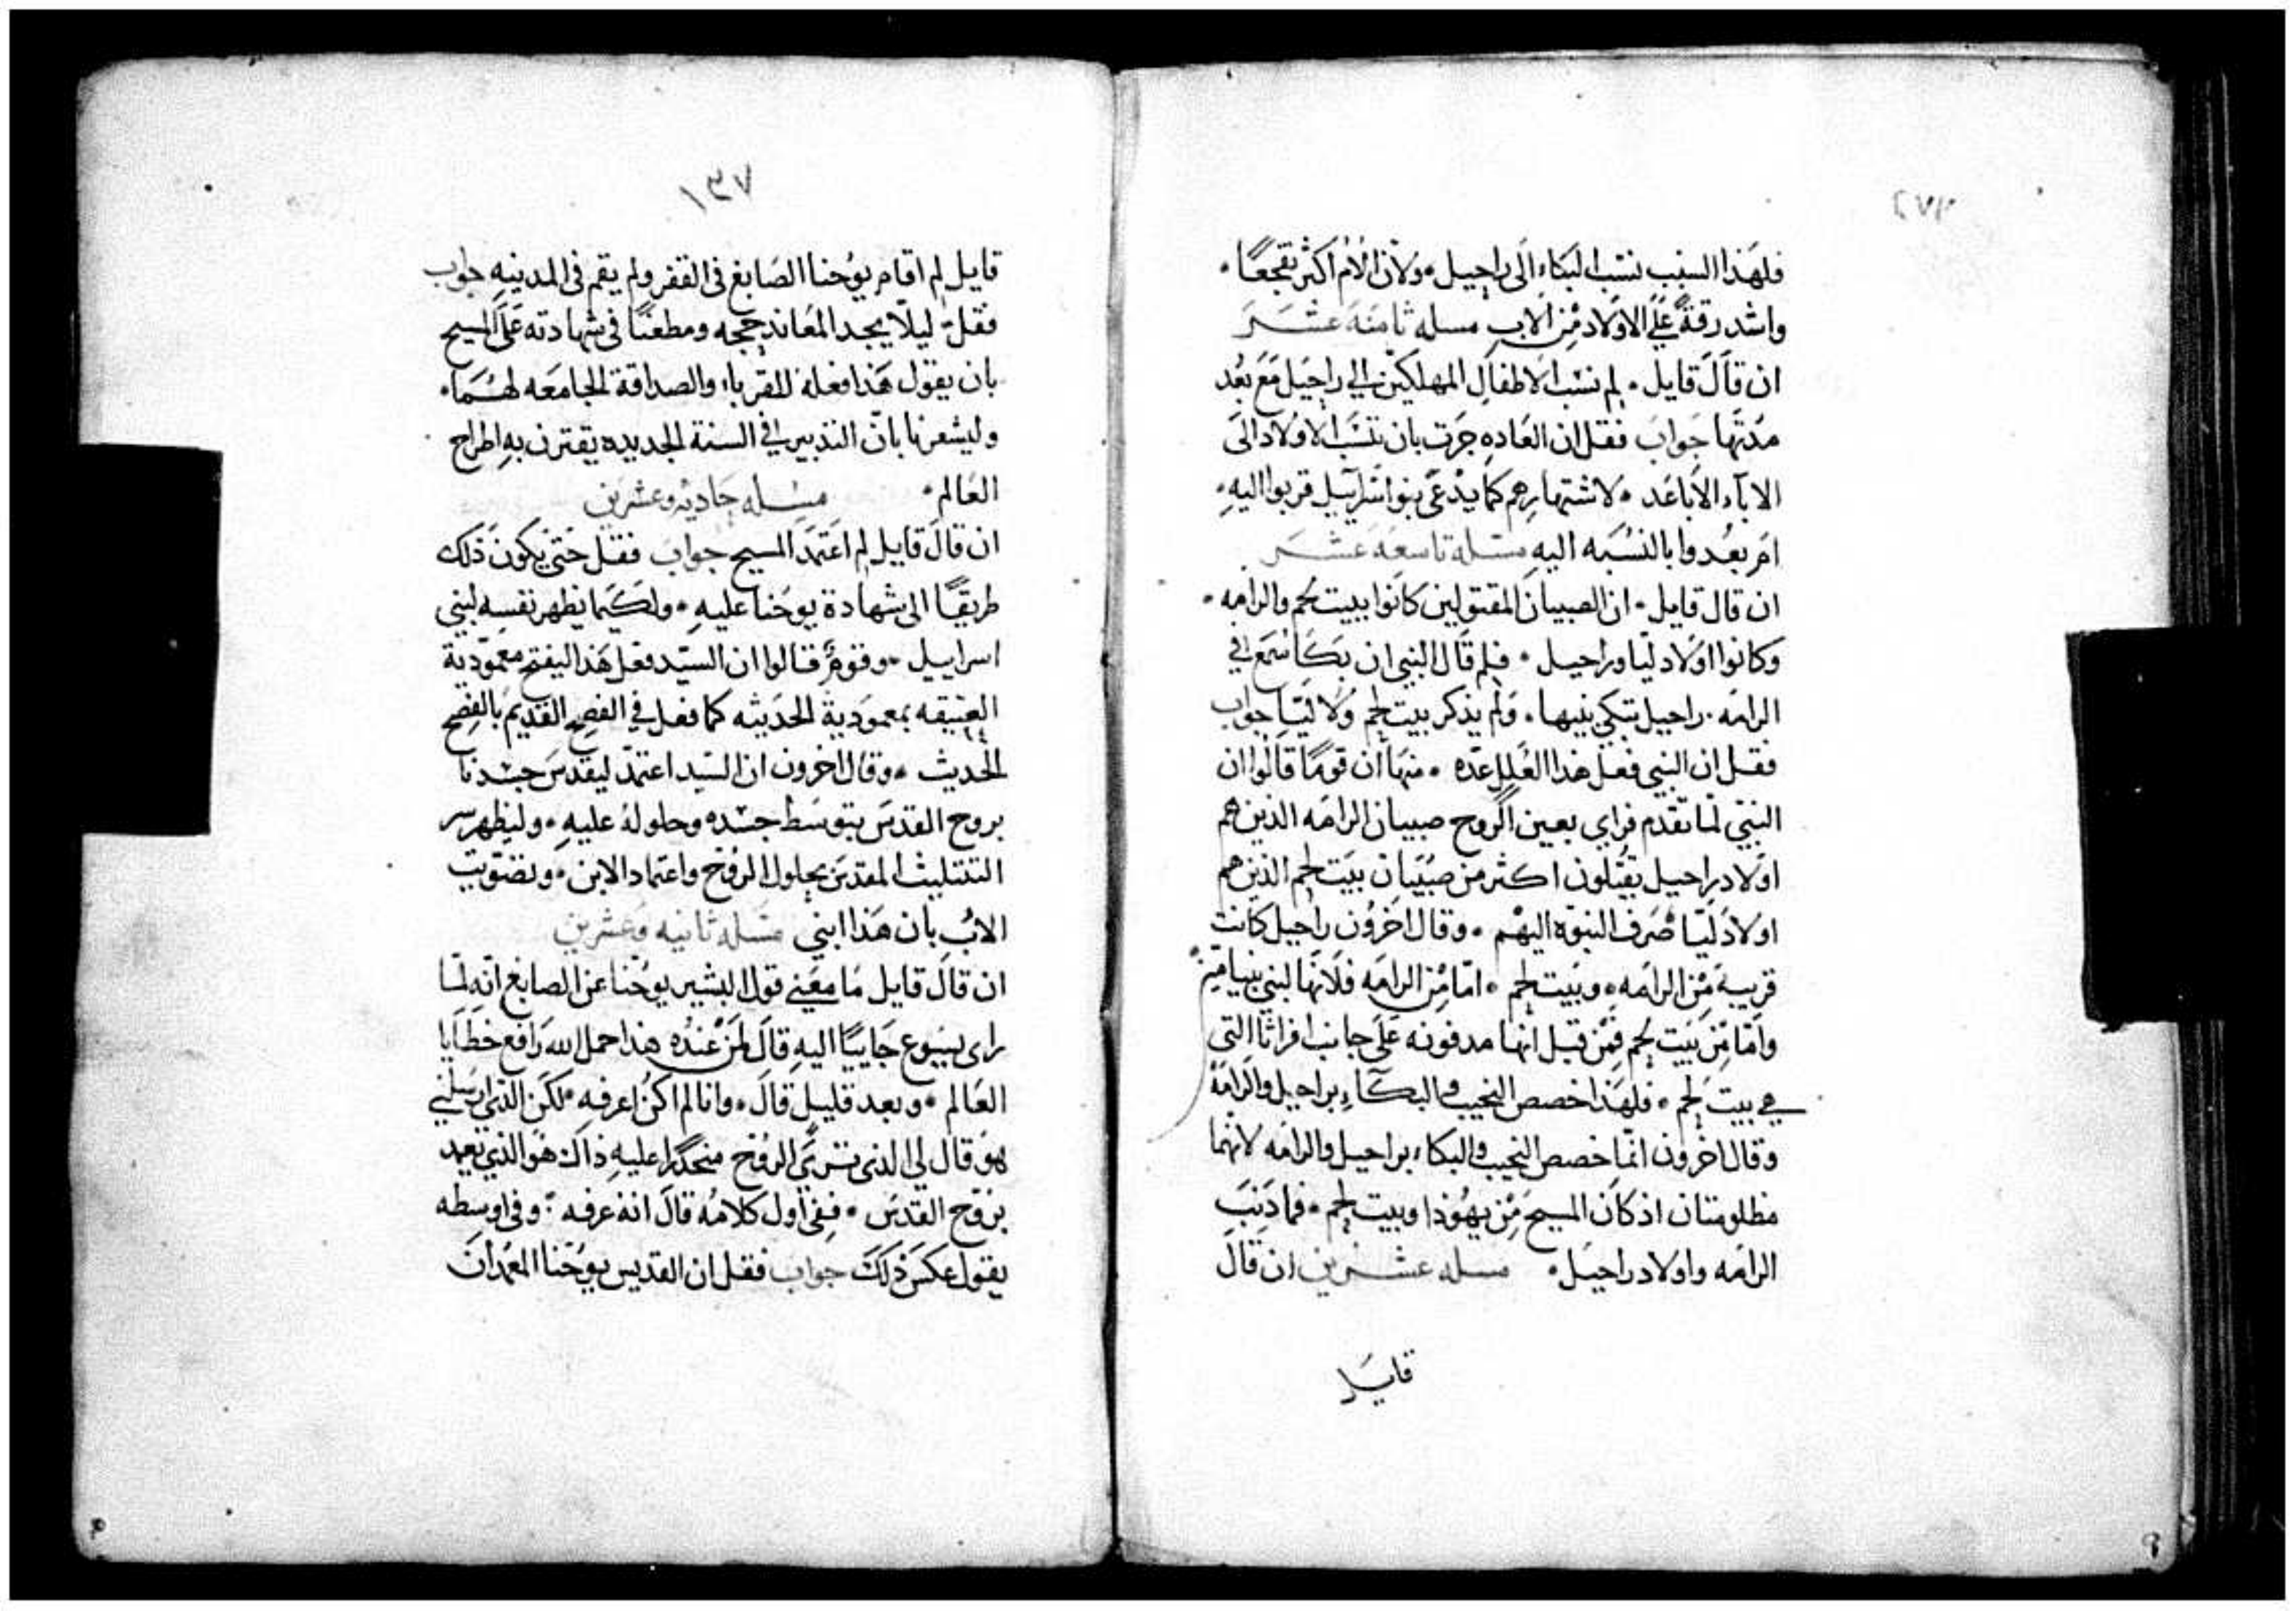 ٢٧٣
فلهَذا السبب نسَب البكاء الَى راحيل • ولأن الأم اكثر تفجعًا •
واشد رقةً عَلَى الاولاد مْن الاب مسله ثامنَة عشَـر
ان قاَلَ قايل • لِم نسَب الاطفال المهلكيْن الى راحَيل مَعَ بُعْد
مدتها جَوابَ فقل ان العَاده جَرت بان تنسَب الاولاد الَى
الابآء الاباعَد • لاشتهارهم كما يدْعَى بنو اسَرآييل قربوا اليهِ •
ام بعُدوا بالنسْبَه اليهِ مسَله تاسعَه عَشـَر
ان قال قايل • ان الصبيان المقتولين كانوا ببيت لحم والرامه •
وكانوا اولاد ليّا وراحيل • فلم قَال النبي ان بكَا سُمعَ في
الرامَه • راحيل تبكي بنيها • ولم يذكر بيت لحم ولا ليّا جواب
فقل ان النبي فعل هذا العَلل عدّه • منهَا ان قومًا قالوا ان
النبَي لمّا تقدم فراي بعين الروح صبيان الرامَه الذين هم
اولاد راحيل يقتلون اكثر من صُبيَان بيَت لحم الذين هم
اولادَ ليّا صَرَف النبوّه اليهْم • وقال اخرُون راحيل كانت
قريبة مْن الرامَه • وبيَت لحم • امّا مْن الرامَه فلانَها لبني بنيامين
وامّا مْن بيَت لحم فمْن قبل انها مدفونه عَلَى جانب افراثا التي
هي بيت لحم • فلهَذا خصص النحيب والبكآء براحيل والرامَه
وقال اخرون انمّا خصص النحيب والبكاء براحيل والرامَه لانهما
مظلومتان اذ كان المسيح مْن يهُوذا وبيت لحم • فما ذنبَ
الرامَه واولاد راحيَل • مسله عشـرين ان قاَل
قايَل
١٣٧
قايل لِم اقام يوُحنا الصَابغ فى القفر ولم يقم فى المدينه جواب
فقلّ ليلّا يجد المعَاند حجه ومطعنًا فى شهادته عَلَى المسيح
بان يقول هَذا فعله للقرباء والصداقة الجامَعه لهُمَا •
وليشعرنا بانّ التدبير في السنة الجديده يقترن بهِ اطراح
العَالم • مسَله حَاديه وعشرين
ان قاَلَ قايل لِم اعَتمَد المسيح جوابَ فقلَ حتى يكونَ ذلك
طريقًا الى شهادة يوحَنا عليهِ • ولكَيما يظهر نفسه لبني
اسراييل • وقومٌ قالوا ان السيّد فعل هَذا ليفتح معمّودية
العتيقه بمعموَدية الحَديثه كما فعل في الفصح القديم بالفِصح
الحديث • وقال اخرون ان السَيد اعتمدّ ليقدسَ جسَدنا
بروح القدسَ بتوسَط جسَده وحلولهُ عليهِ • وليظهر سر
التتليث المقدسَ بحلول الروُح واعتماد الابن • وتصّويت
الابُ بان هَذا ابني مسَله ثانيه وعشرين
ان قاَلَ قايل ما معَني قول البشير يوحَنا عن الصابغ انهِ لمّا
راى يسَوع جَايبًا اليهِ قالَ لمَن عْنده هذا حمل الله رَافع خطَايا
العَالم • وبعد قليل قالَ • وانا لم اكنْ اعرفهِ • لكنَ الذي ارسَلني
هوَ قال لي الذى ترىَ الروُح منحدرًا عليهِ ذاك هَو الذي يعمد
بروُح القدسَ • ففي اول كلامُه قالَ انهْ عرفه • وفى اوسطه
يقول عكسَ ذلكَ جواب فقل ان القديس يوحَنا المعَمدانَ